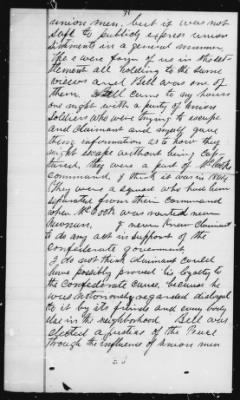 union men, but it was not
safe to publicly express union
sentiments in a general manner
there were four of us in the set-
tlement all holding to the same
views and Bell was one of
them. Bell came to my house
one night with a party of Union
soldiers who were trying to escape
and claimant and myself gave
being information as to how they
might escape without being cap-
tured, they were a part of McCooks
command, I think it was in 1864
(they were a squad who had been
separated from their command
when McCook was routed near
Newnan. I never knew claimant
to do any act in support of the
confederate government
I do not think claimant could
have possibly proved his loyalty to
the confederate cause, because he
was notoriously regarded disloyal
to it by its friends and every body
else in the neighborhood. Bell was
elected a justice of the Peace
through the influence of Union men